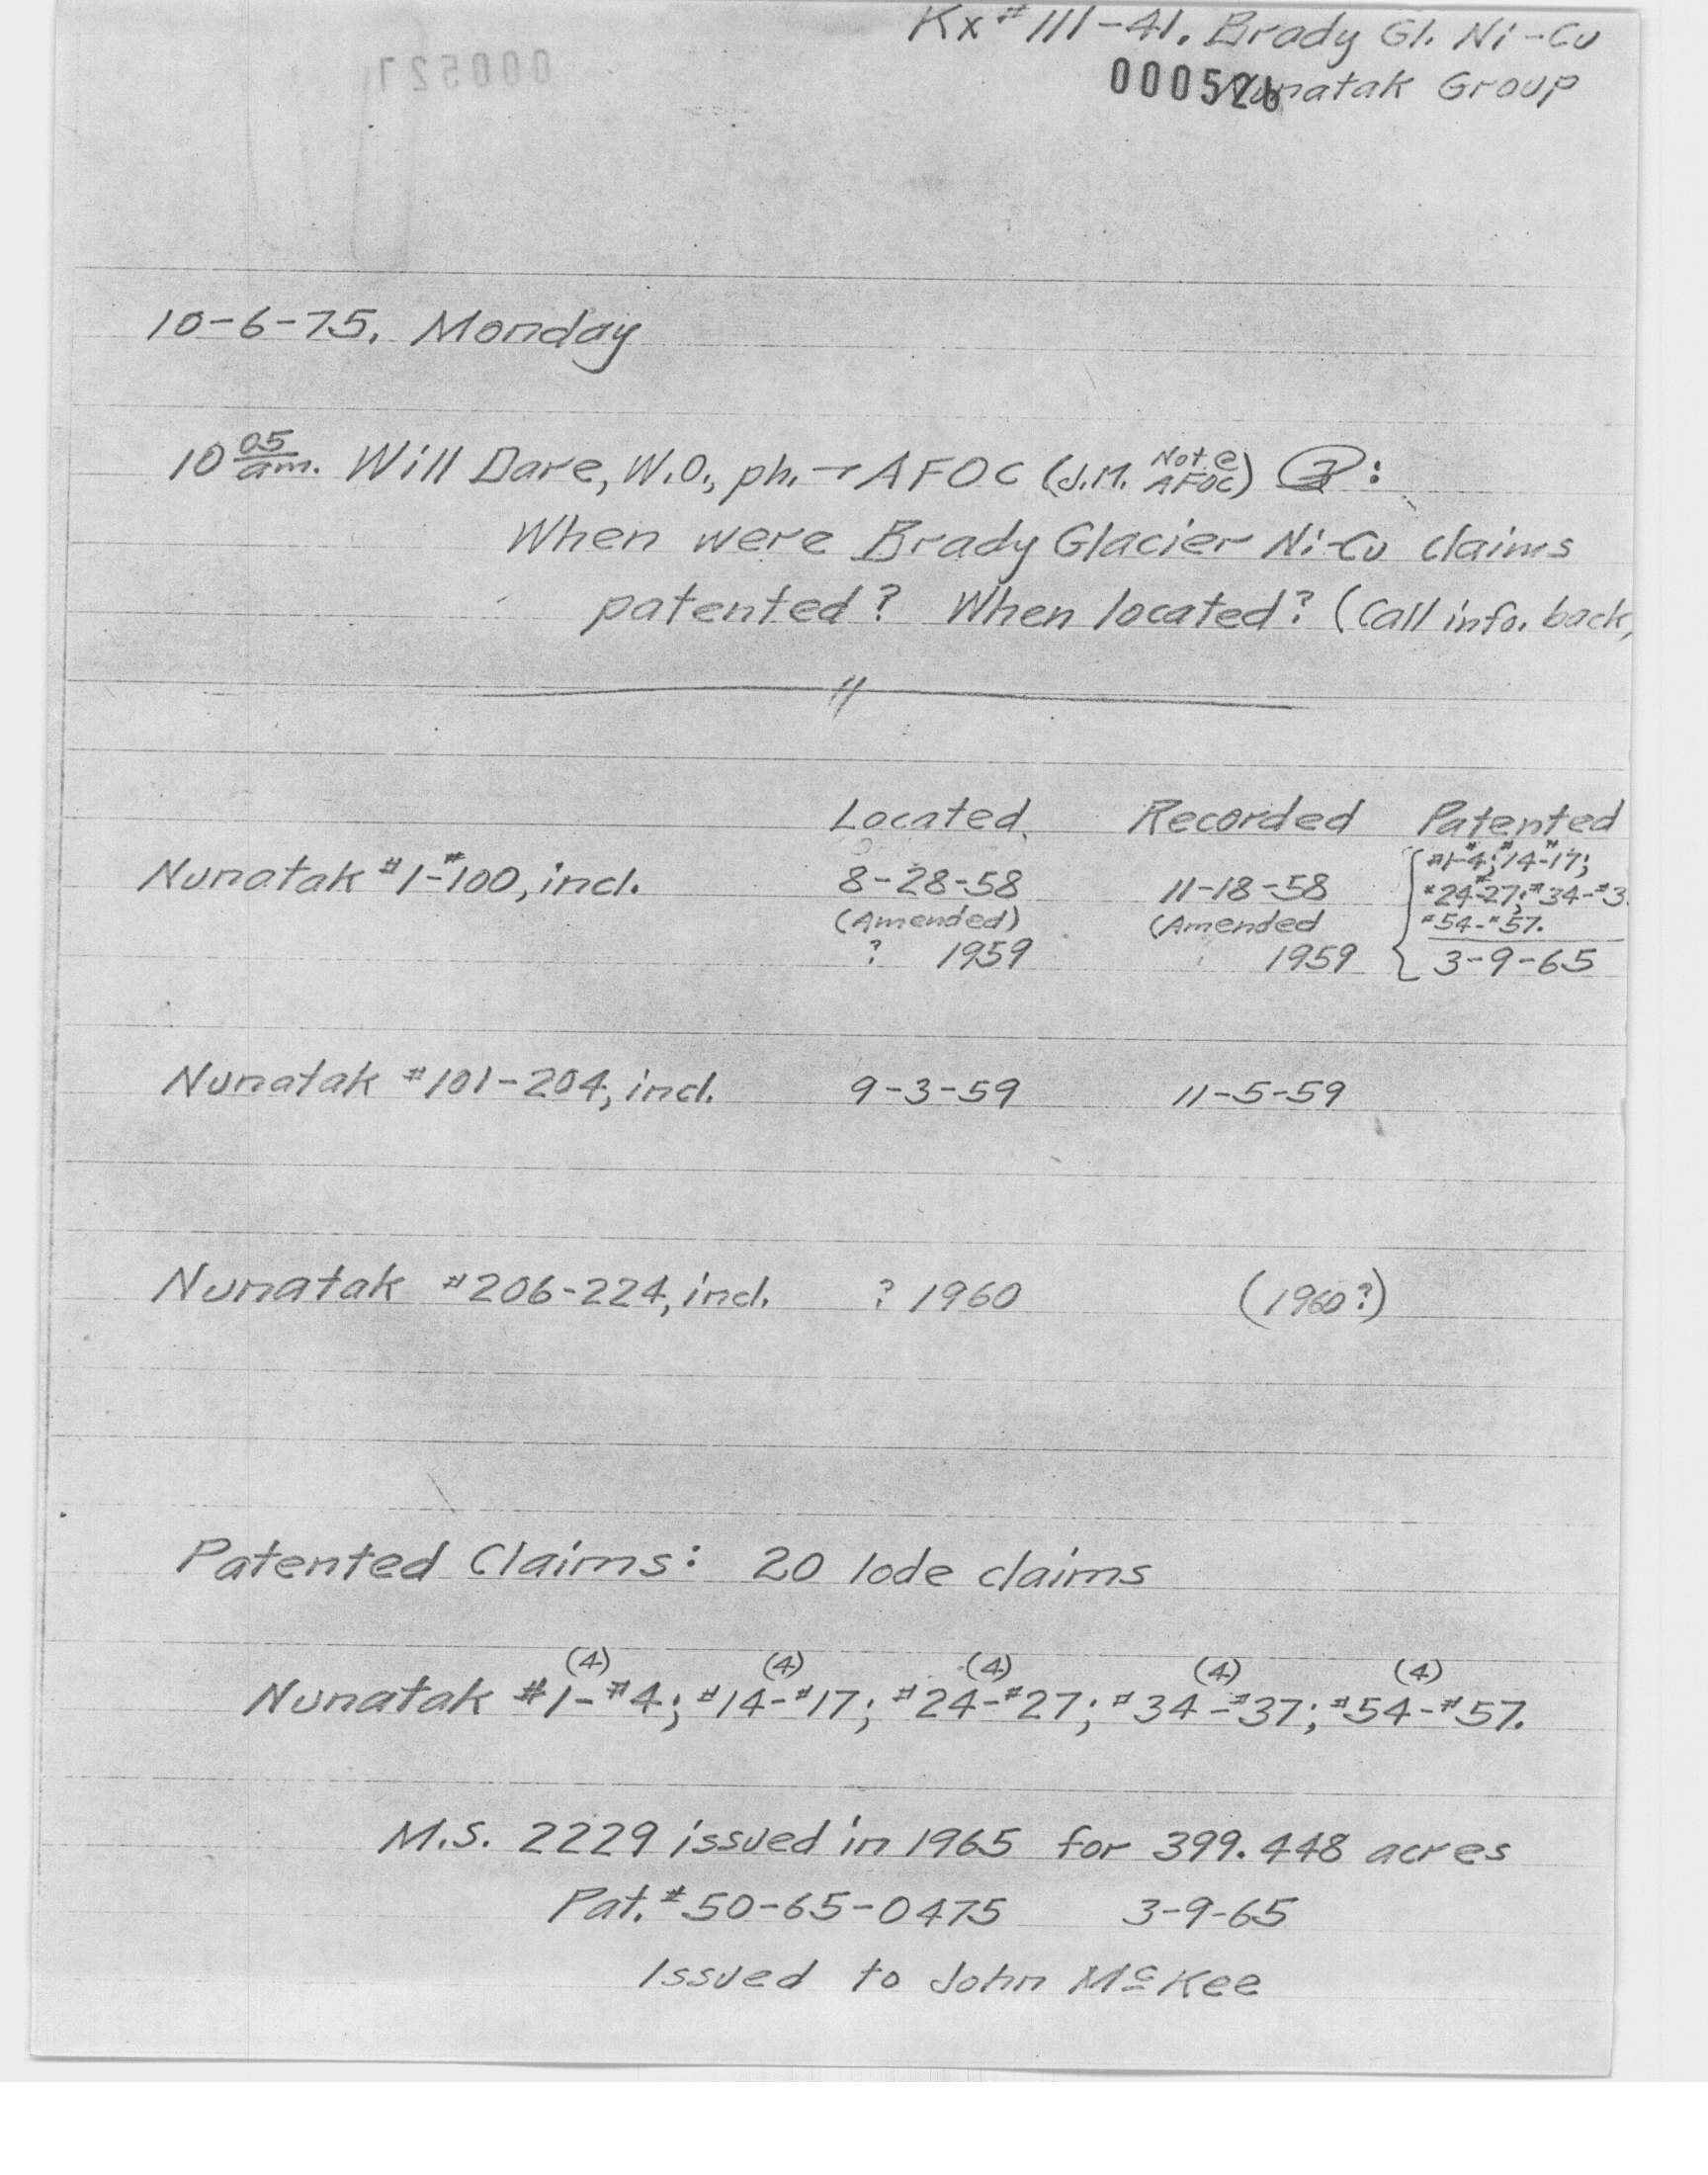 Kx #111-41. Brady Gl. Ni-Cu
000526 Nunatak Group
000527
10-6-75. Monday
10 05 am. Will Dare, W.O., ph. → AFOC (J.M. Not @ AFOC) :
When were Brady Glacier Ni-Cu claims
patented? When located? (Call info. back,
Located Recorded Patented
Nunatak #1-#100, incl. 8-28-58 11-18-58 #1-#4; #14-#17;
#24-#27; #34-#3
(Amended) (Amended #54-#57.
? 1959 1959 3-9-65
Nunatak #101-204, incl. 9-3-59 11-5-59
Nunatak #206-224, incl. ? 1960 (1960?)
Patented Claims: 20 lode claims
(4) (4) (4) (4) (4)
Nunatak #1-#4; #14-#17; #24-#27; #34-#37; #54-#57.
M.S. 2229 issued in 1965 for 399.448 acres
Pat. #50-65-0475 3-9-65
Issued to John McKee